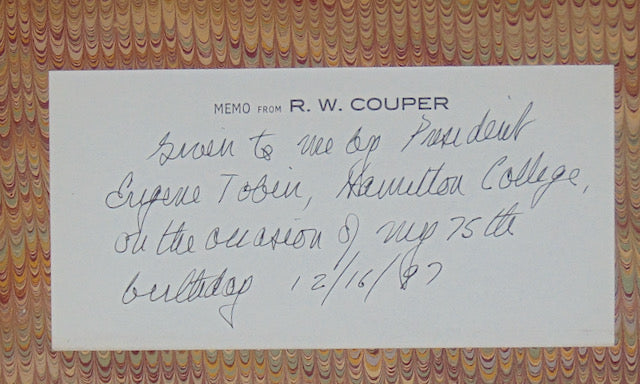 MEMO FROM R. W. COUPER
Given to me by President
Eugene Tobin, Hamilton College,
on the occasion of my 75th
birthday 12/16/97